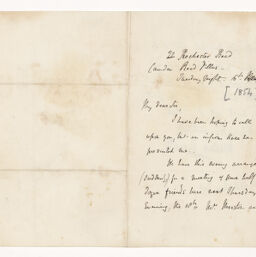 22 Rochester Road
Camden Road Villas
Tuesday Night 16th
[1854]
My dear Sir,
I have been hoping to call
upon you, but an infirm knee has
prevented me.
We have this evening arranged
(suddenly) for a meeting of some half
dozen friends here next Thursday
evening, the 18th. Mr.